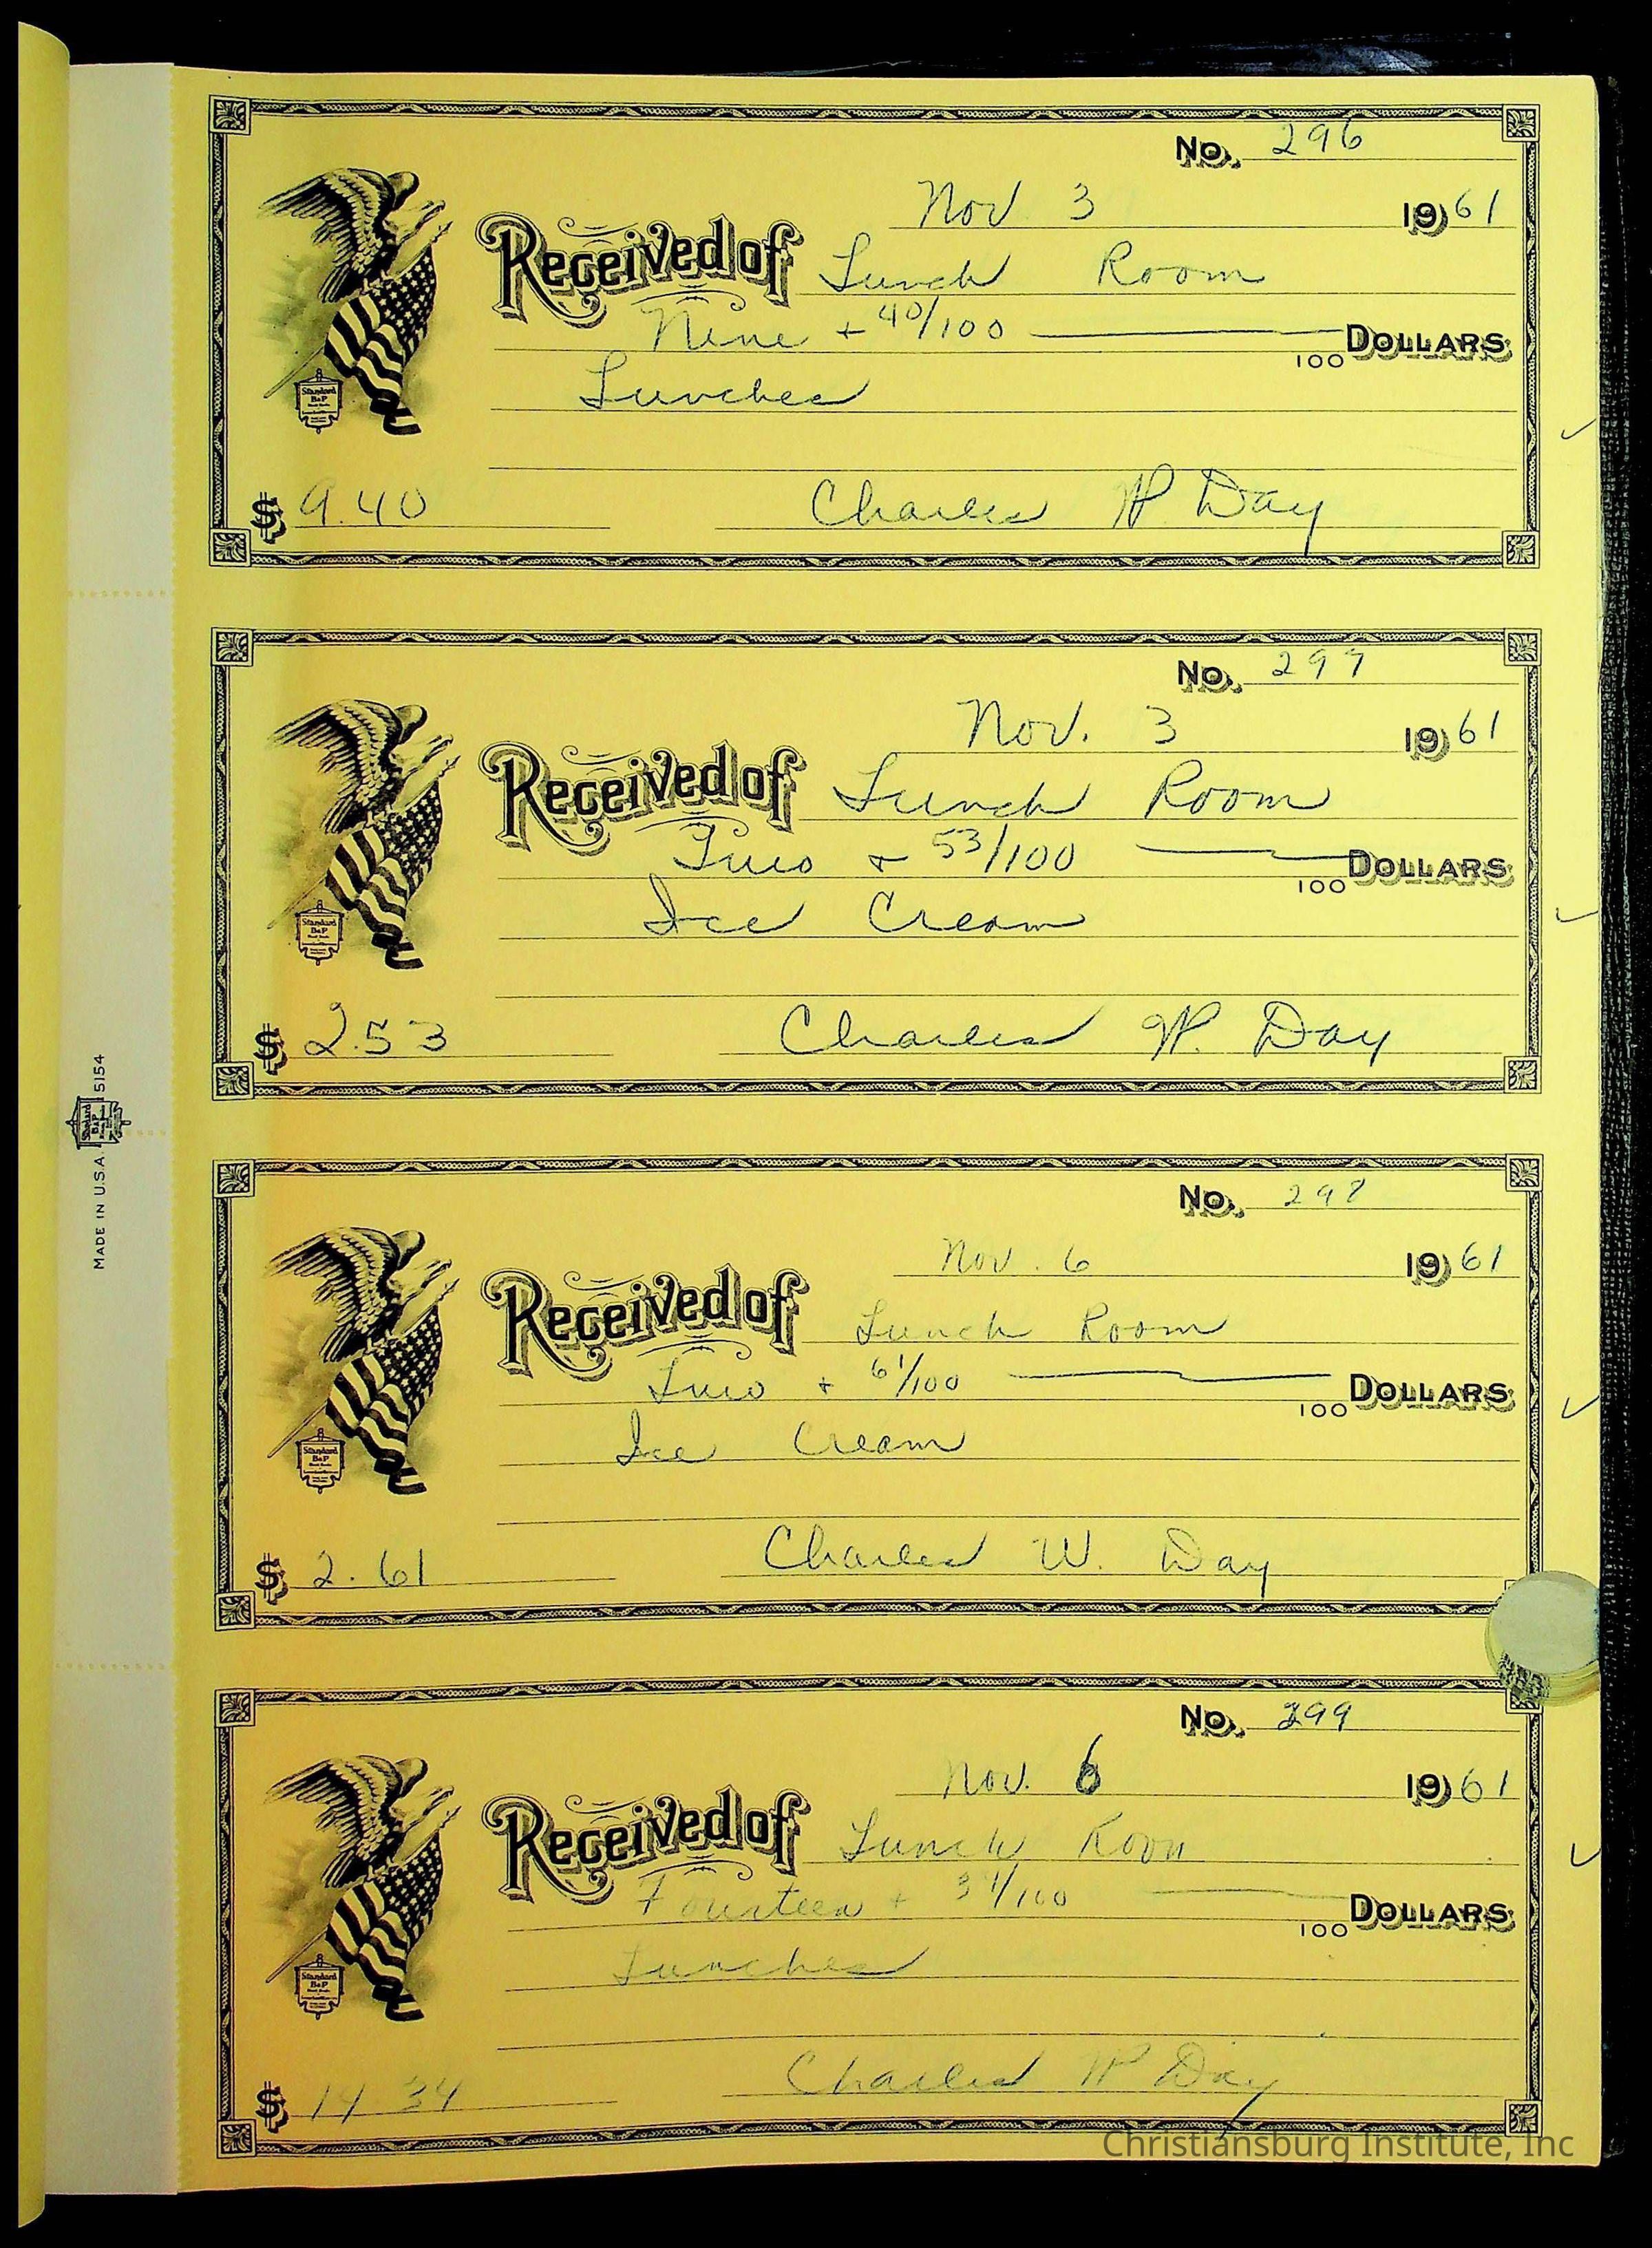 No. 296
Nov 3 1961
Received of Lunch Room
Nine + 40/100 100 DOLLARS
Lunches
$ 9.40 Charles W. Day
No. 297
Nov. 3 1961
Received of Lunch Room
Two + 53/100 100 DOLLARS
Ice Cream
$ 2.53 Charles W. Day
MADE IN U.S.A. Standard B&P 5154
No. 298
Nov. 6 1961
Received of Lunch Room
Two + 61/100 100 DOLLARS
Ice Cream
$ 2.61 Charles W. Day
No. 299
Nov. 6 1961
Received of Lunch Room
Fourteen + 34/100 100 DOLLARS
Lunches
$ 14.34 Charles W. Day
Standard B&P
Standard B&P
Standard B&P
Standard B&P
Christiansburg Institute, Inc